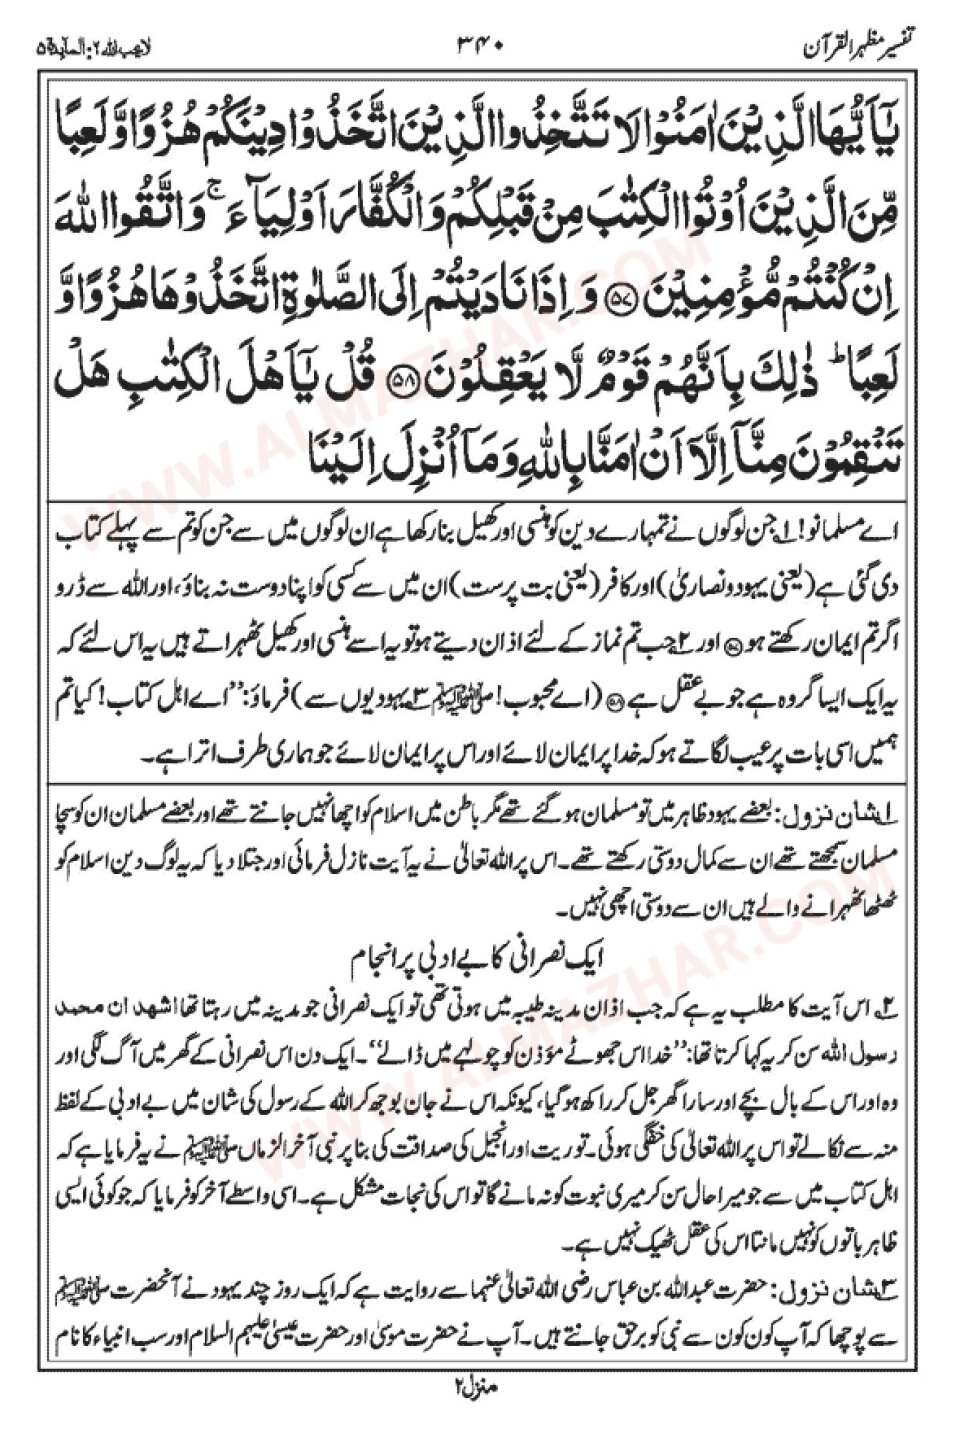 تفسیر مظہر القرآن
۳۴۰
لا یحب اللہ ۶: المآیدۃ ۵
يٰۤاَيُّهَا الَّذِيْنَ اٰمَنُوْا لَا تَتَّخِذُوا الَّذِيْنَ اتَّخَذُوْا دِيْنَكُمْ هُزُوًا وَّلَعِبًا
مِّنَ الَّذِيْنَ اُوْتُوا الْكِتٰبَ مِنْ قَبْلِكُمْ وَالْكُفَّارَ اَوْلِيَآءَ ۚ وَاتَّقُوا اللّٰهَ
اِنْ كُنْتُمْ مُّؤْمِنِيْنَ ﴿۵۷﴾ وَاِذَا نَادَيْتُمْ اِلَى الصَّلٰوةِ اتَّخَذُوْهَا هُزُوًا وَّ
لَعِبًا ؕ ذٰلِكَ بِاَنَّهُمْ قَوْمٌ لَّا يَعْقِلُوْنَ ﴿۵۸﴾ قُلْ يٰۤاَهْلَ الْكِتٰبِ هَلْ
تَنْقِمُوْنَ مِنَّاۤ اِلَّاۤ اَنْ اٰمَنَّا بِاللّٰهِ وَمَاۤ اُنْزِلَ اِلَيْنَا
اے مسلمانو! ۱؎ جن لوگوں نے تمہارے دین کو ہنسی اور کھیل بنا رکھا ہے ان لوگوں میں سے جن کو تم سے پہلے کتاب
دی گئی ہے (یعنی یہود و نصاریٰ) اور کافر (یعنی بت پرست) ان میں سے کسی کو اپنا دوست نہ بناؤ، اور اللہ سے ڈرو
اگر تم ایمان رکھتے ہو ﴿۵۷﴾ اور ۲؎ جب تم نماز کے لئے اذان دیتے ہو تو یہ اسے ہنسی اور کھیل ٹھہراتے ہیں یہ اس لئے کہ
یہ ایک ایسا گروہ ہے جو بے عقل ہے ﴿۵۸﴾ (اے محبوب! ﷺ ۳؎ یہودیوں سے) فرماؤ: ”اے اہل کتاب! کیا تم
ہمیں اسی بات پر عیب لگاتے ہو کہ خدا پر ایمان لائے اور اس پر ایمان لائے جو ہماری طرف اترا ہے۔
۱؎ شان نزول: بعضے یہود ظاہر میں تو مسلمان ہو گئے تھے مگر باطن میں اسلام کو اچھا نہیں جانتے تھے اور بعضے مسلمان ان کو سچا
مسلمان سمجھتے تھے ان سے کمال دوستی رکھتے تھے۔ اس پر اللہ تعالیٰ نے یہ آیت نازل فرمائی اور جتلا دیا کہ یہ لوگ دین اسلام کو
ٹھٹھا ٹھہرانے والے ہیں ان سے دوستی اچھی نہیں۔
ایک نصرانی کا بے ادبی پر انجام
۲؎ اس آیت کا مطلب یہ ہے کہ جب اذان مدینہ طیبہ میں ہوتی تھی تو ایک نصرانی جو مدینہ میں رہتا تھا اشهد ان محمد
رسول الله سن کر یہ کہا کرتا تھا: ”خدا اس جھوٹے مؤذن کو چولہے میں ڈالے“۔ ایک دن اس نصرانی کے گھر میں آگ لگی اور
وہ اور اس کے بال بچے اور سارا گھر جل کر راکھ ہو گیا، کیونکہ اس نے جان بوجھ کر اللہ کے رسول کی شان میں بے ادبی کے لفظ
منہ سے نکالے تو اس پر اللہ تعالیٰ کی خفگی ہوئی۔ توریت اور انجیل کی صداقت کی بنا پر نبی آخر الزماں ﷺ نے یہ فرمایا ہے کہ
اہل کتاب میں سے جو میرا حال سن کر میری نبوت کو نہ مانے گا تو اس کی نجات مشکل ہے۔ اسی واسطے آخر کو فرمایا کہ جو کوئی ایسی
ظاہر باتوں کو نہیں مانتا اس کی عقل ٹھیک نہیں ہے۔
۳؎ شان نزول: حضرت عبداللہ بن عباس رضی اللہ تعالیٰ عنہما سے روایت ہے کہ ایک روز چند یہود نے آنحضرت ﷺ
سے پوچھا کہ آپ کون کون سے نبی کو برحق جانتے ہیں۔ آپ نے حضرت موسیٰ اور حضرت عیسیٰ علیہم السلام اور سب انبیاء کا نام
منزل ۲
WWW.ALMAZHAR.COM
WWW.ALMAZHAR.COM